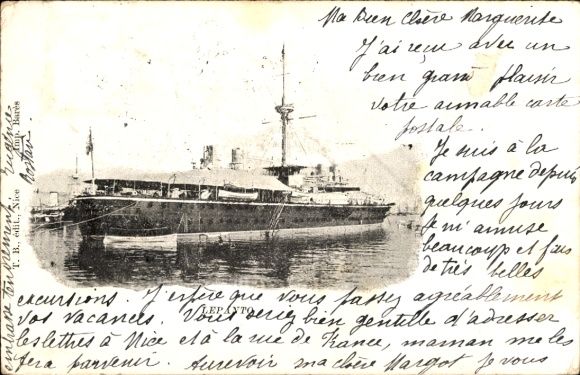 Ma Bien chère Marguerite
J'ai reçu avec un
bien grand plaisir
votre aimable carte
postale.
Je suis à la
campagne depuis
quelques jours
je m'amuse
beaucoup et fais
de très belles
excursions. J'espère que vous passez agréablement
vos vacances. Vous seriez bien gentille d'adresser
les lettres à Nice et à la rue de France, maman me les
fera parvenir. Au revoir ma chère Margot je vous
embrasse tendrement
Eugénie
LEPANTO
T. B. édit., Nice Imp. Barès